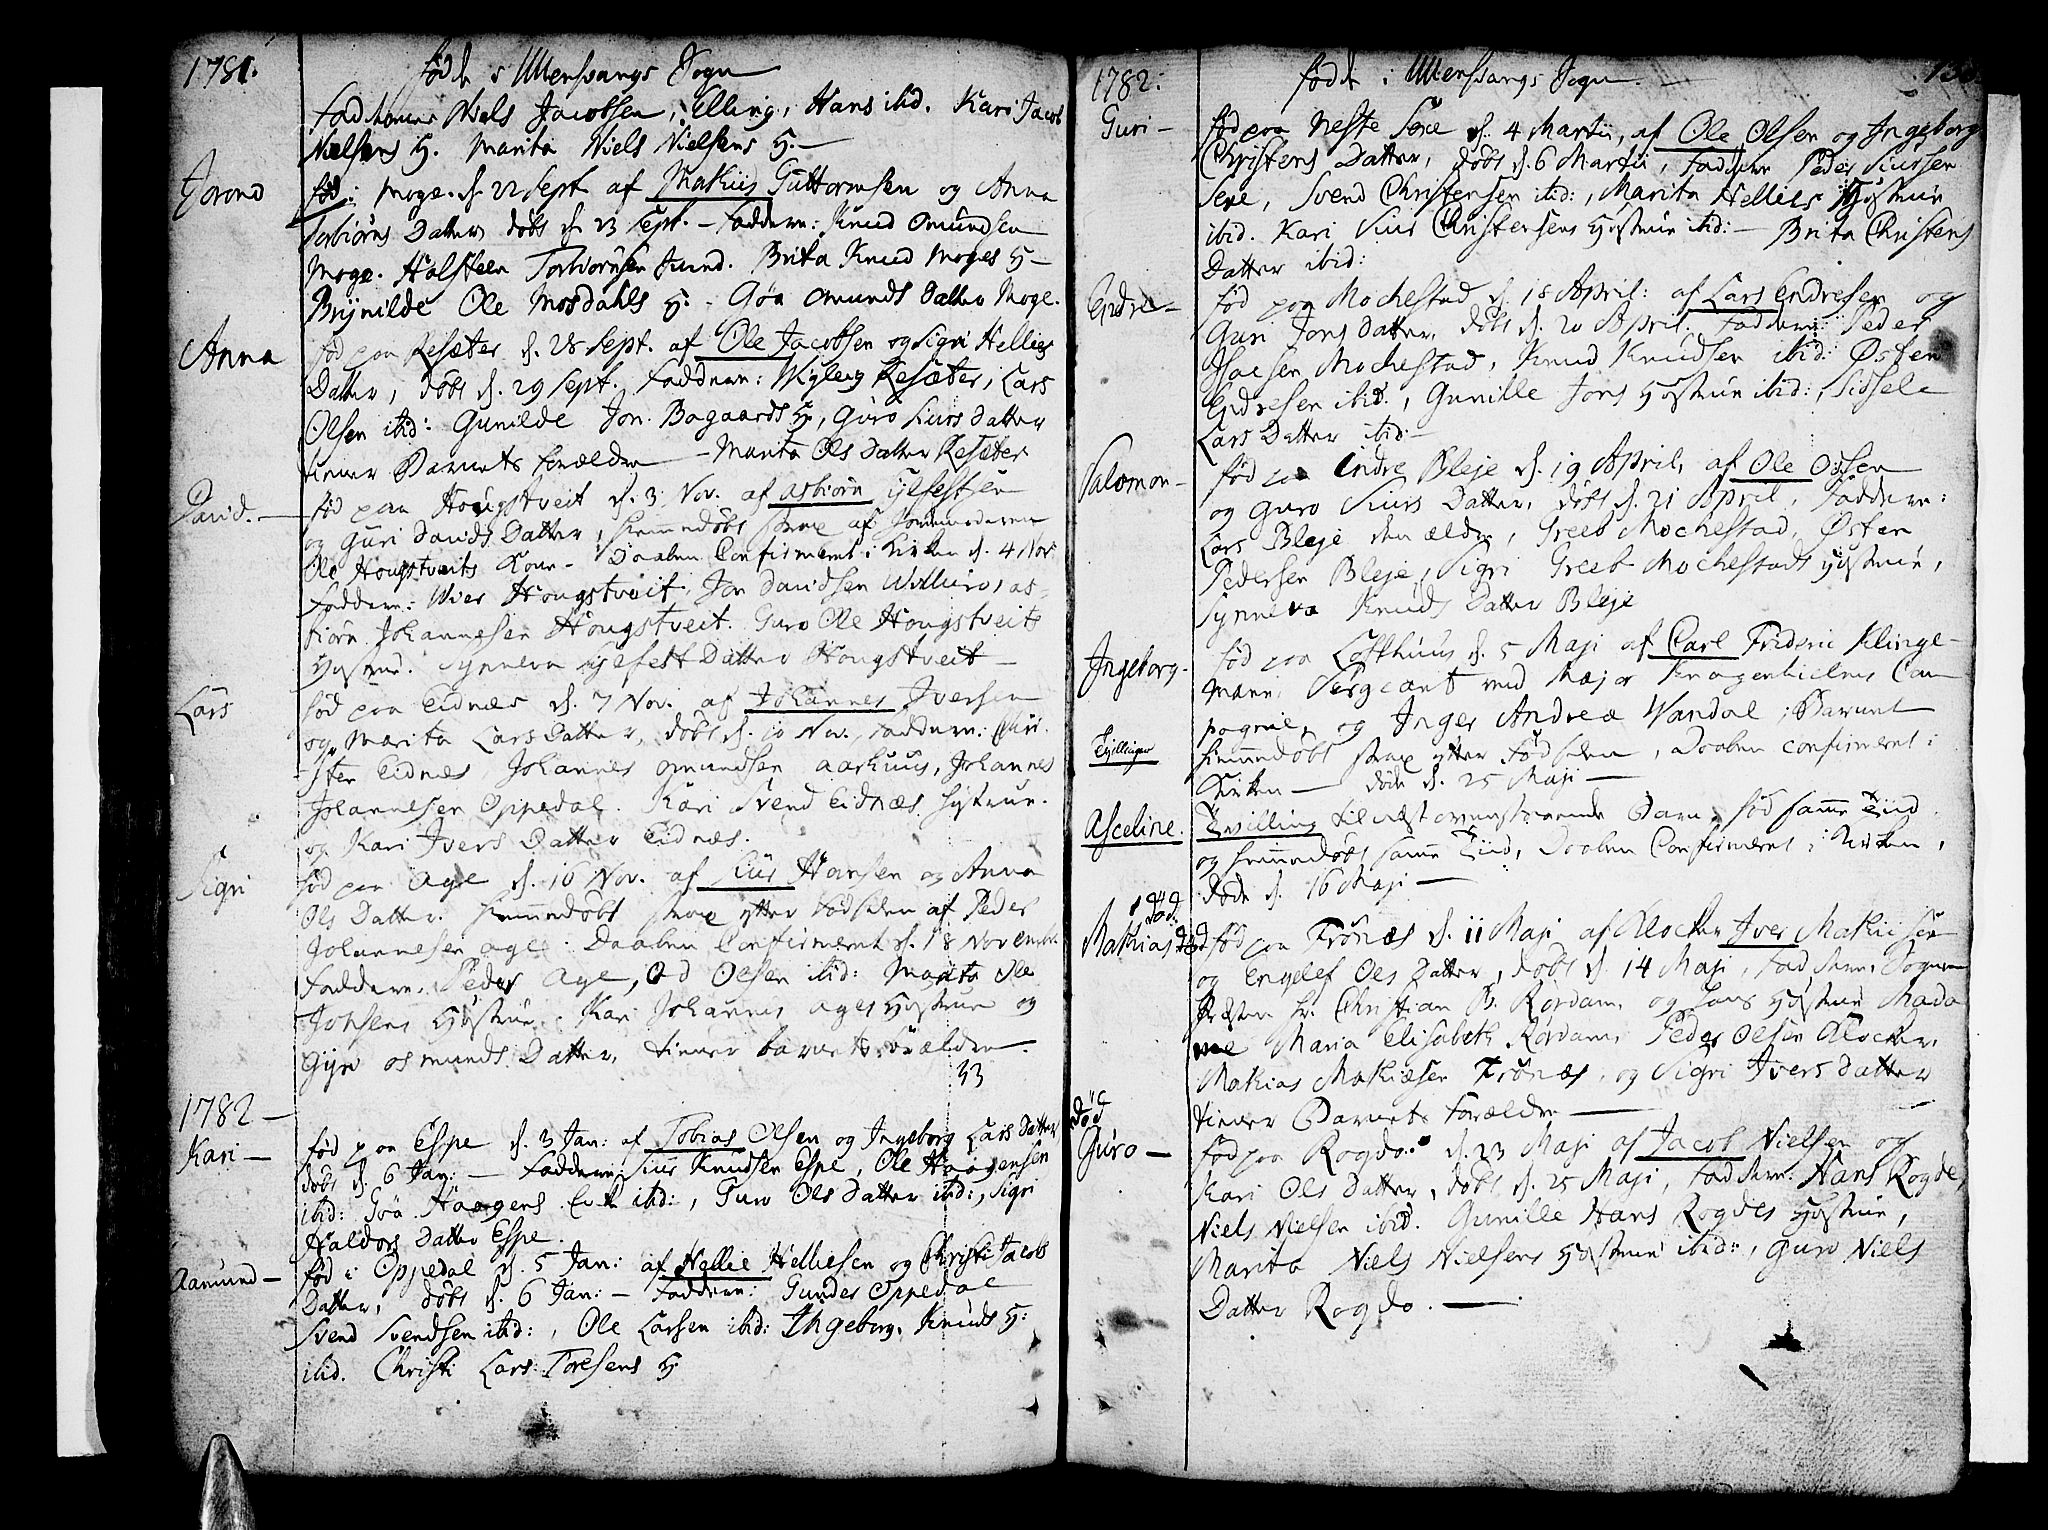 1781.
fødde i Ullensvangs Sogn
Fadderne Niels Jacobsen, Elling, Hans ibid. Kari Jacob
Nielsens H. Marita Niels Nielsens H. —
Jorond
fød i Moge. d. 22 Sept. af Mathiis Guttormsen og Anna
Torbiørns Datter, døbt d. 23 Sept. — Faddere: Knud Omundsen
Moge. Halsteen Torbiørnsen Band. Brita Knud Moges H —
Brynilde Ole Mosdahls H: - Gøa Omunds Datter Moge.
Anna
fød paa Resæter d. 28 Sept. af Ole Jacobsen og Sigri Hellies
Datter, døbt d. 29 Sept. Faddere: Resæter, Lars
Olsen ibid: Gunilde Jon Bogaards H, Guro Siurs Datter
tiener Barnets Forældre — Marita Ols Datter Resæter
David. —
fød paa Hougstveit d. 3 Nov. af Asbiørn Sylfestsen
og Guri Davids Datter, hiemmedøbt strax af Jordmoderen
Ole Hougstveits Kone - Daaben Confirmeret i Kirken d. 4 Nov.
Faddere: Wier Hougstveit, Jon Davidsen Willure, as-
biørn Johannesen Hougstveit. Guro Ole Hougstveits
Hustrue. Synneva Sylfest Datter Hougstveit —
Lars
fød paa Eidnæs d. 7 Nov. af Johannes Iversen
og Marita Lars Datter, døbt d. 10 Nov., Faddere:
Eidnæs, Johannes Omundsen Aarhuus, Johannes
Johannesen Oppedal. Kari Svend Eidnæs Hustrue.
og Kari Ivers Datter Eidnæs.
Sigri
fød paa Age d. 16 Nov. af Siur Hansen og Anna
Ols Datter. hiemmedøbt strax efter Fødselen af Peder
Johannesen Age: Daaben Confirmeret d. 18 Novembr
Faddere. Peder Age, Od Olsen ibid: Marita Ole
Johsens Hustrue. Kari Johannes Ages Hustrue og
Gyri Osmunds Datter, tiener barnets Forældre. —
33
1782 —
Kari —
fød paa Espe d. 3 Jan: af Tobias Olsen og Ingeborg Lars Datter
døbt d. 6 Jan: — Faddere: Siur Knudsen Espe, Ole Haagensen
ibid: Gøa Haagens ibid:, Guro Ols Datter ibid:, Sigri
Haldors Datter Espe.
Aamund —
fød i Oppedal d. 5 Jan: af Hellie Helliesen og Christi Jacobs
Datter, døbt d. 6 Jan: — Faddere: Gunder Oppedal
Svend Svendsen ibid:, Ole Larsen ibid: Ingeborg Knuds H:
ibid. Christi Lars Toresens H
1782.
fødde i Ullensvangs Sogn. —
Guri —
fød paa Neste Sexe d. 4 Martii, af Ole Olsen og Ingeborg
Christens Datter, døbt d. 6 Martii, Faddere Peder Siursen
Sexe, Svend Christensen ibid:, Marita Hellies Hustrue
ibid. Kari Siur Christensens Hustrue ibid: — Brita Christens
Datter ibid:
Endre —
fød paa Mochestad d. 18 April: af Lars Endresen og
Guri Jons Datter, døbt d. 20 April. Faddere: Peder
Isacsen Mochestad, Knud Knudsen ibid: Østen
Endresen ibid., Gunille Jons Hustrue ibid:, Sidsele
Lars Datter ibid —
Salomon —
fød paa Indre Bleje d. 19 April, af Ole Olsen
og Guro Siurs Datter, døbt d. 21 April, Faddere:
Lars Bleje den ældre, Greeb Mochestad, Østen
Pedersen Bleje, Sigri Greeb Mochestads Hustrue,
Synneva Knuds Datter Bleje
Ingeborg —
fød paa Lofthuus d. 5 Maji af Carl Frideric Klinge-
mann, Sergeant ved Major Knagenhielms Com
pagnie, og Inger Andrea Wandal, Barnet
Tvillinger
hiemmedøbt strax efter Fødselen, Daaben confirmeret i
Kirken — døde d. 25 Maji —
Asceline.
Tvilling til næst ovenstaaende Barn, fød samme Tiid
og hiemmedøbt samme Tiid, Daaben Confirmeret i Kirken,
døde d. 16 Maji —
død.
Mathias
fød paa Trønæs d. 11 Maji af Klocker Iver Mathisen
og Engelef Ols Datter, døbt d. 14 Maji, Faddere, Sogne
Præsten Hr. Christian B. Rørdam, og hans Hustrue Mada
me Maria Elisabeth Rørdam, Peder Olsen Klocker,
Mathias Mathisen Trønæs, og Sigri Ivers Datter
tiener Barnets Forældre —
død
Guro —
fød paa Rogdo. d. 23 Maji af Jacob Nielsen og
Kari Ols Datter, døbt d. 25 Maji, Faddere. Hans Rogde,
Niels Nielsen ibid. Gunille Hans Rogdes Hustrue,
Marita Niels Nielsens Hustrue ibid:, Guro Niels
Datter Rogdo. —